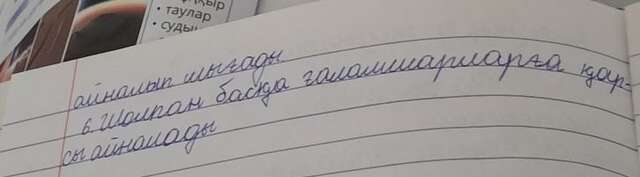 • таулар
айналып шығады
6. Шолпан басқа ғаламшарларға қар-
сы айналады